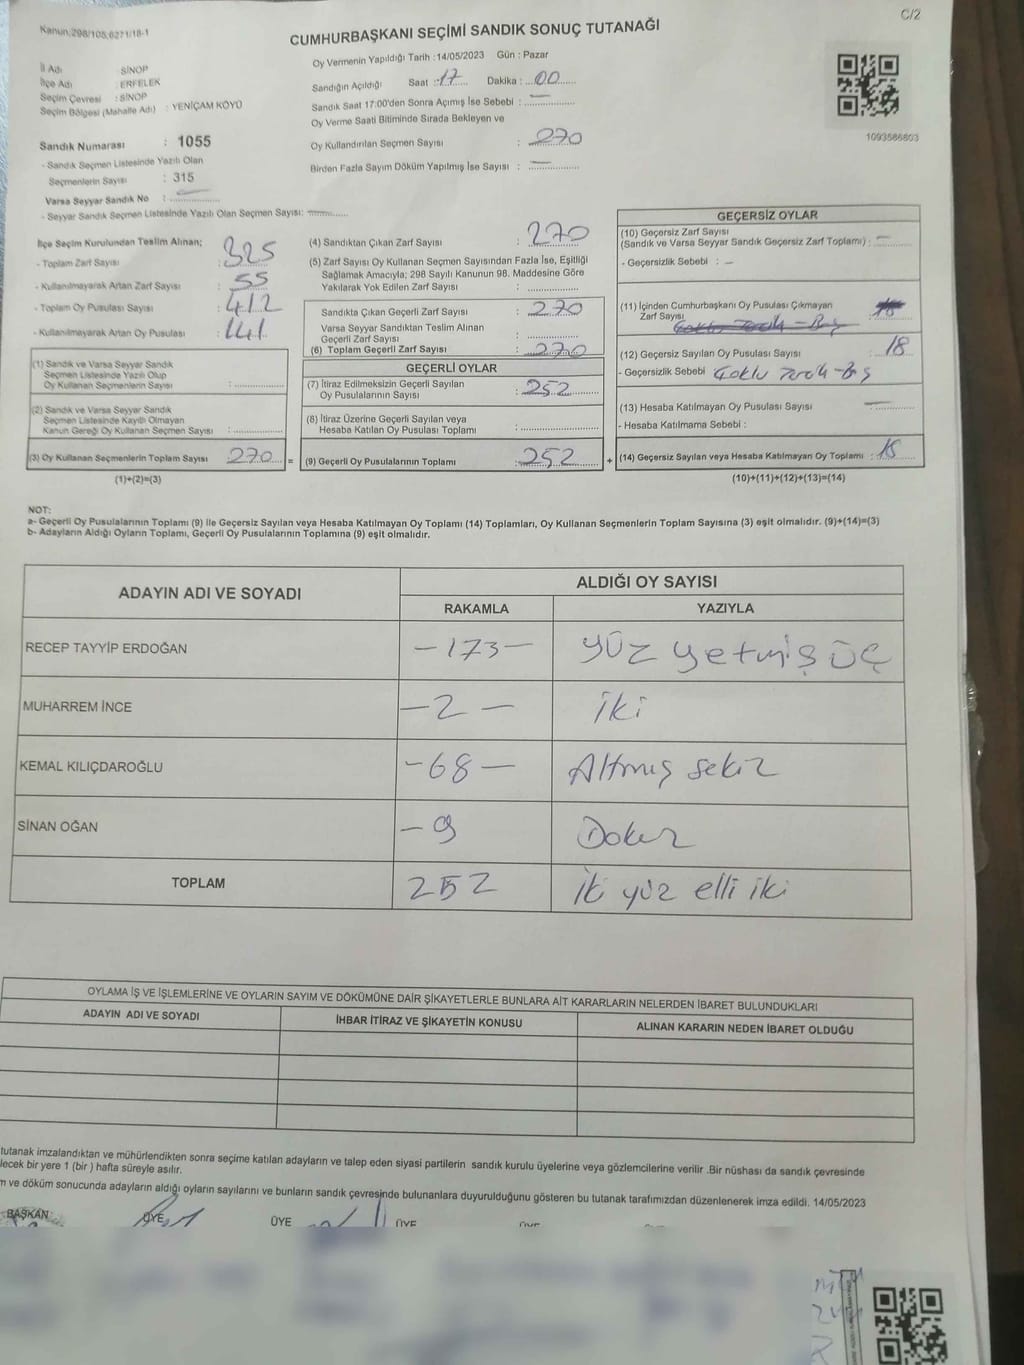 Kanun:298/105,6271/18-1
C/2
CUMHURBAŞKANI SEÇİMİ SANDIK SONUÇ TUTANAĞI
İl Adı : SİNOP
İlçe Adı : ERFELEK
Seçim Çevresi : SİNOP
Seçim Bölgesi (Mahalle Adı) : YENİÇAM KÖYÜ
Sandık Numarası : 1055
- Sandık Seçmen Listesinde Yazılı Olan
Seçmenlerin Sayısı : 315
Varsa Seyyar Sandık No : —
- Seyyar Sandık Seçmen Listesinde Yazılı Olan Seçmen Sayısı: —
Oy Vermenin Yapıldığı Tarih :14/05/2023 Gün : Pazar
Sandığın Açıldığı Saat : 17 Dakika : 00
Sandık Saat 17:00'den Sonra Açımış İse Sebebi : —
Oy Verme Saati Bitiminde Sırada Bekleyen ve
Oy Kullandırılan Seçmen Sayısı : 270
Birden Fazla Sayım Döküm Yapılmış İse Sayısı : —
1093586803
İlçe Seçim Kurulundan Teslim Alınan;
- Toplam Zarf Sayısı : 325
- Kullanılmayarak Artan Zarf Sayısı : 55
- Toplam Oy Pusulası Sayısı : 412
- Kullanılmayarak Artan Oy Pusulası : 141
(1) Sandık ve Varsa Seyyar Sandık
Seçmen Listesinde Yazılı Olup
Oy Kullanan Seçmenlerin Sayısı :
(2) Sandık ve Varsa Seyyar Sandık
Seçmen Listesinde Kayıtlı Olmayan
Kanun Gereği Oy Kullanan Seçmen Sayısı :
(3) Oy Kullanan Seçmenlerin Toplam Sayısı : 270 =
(1)+(2)=(3)
(4) Sandıktan Çıkan Zarf Sayısı : 270
(5) Zarf Sayısı Oy Kullanan Seçmen Sayısından Fazla İse, Eşitliği
Sağlamak Amacıyla; 298 Sayılı Kanunun 98. Maddesine Göre
Yakılarak Yok Edilen Zarf Sayısı :
Sandıkta Çıkan Geçerli Zarf Sayısı : 270
Varsa Seyyar Sandıktan Teslim Alınan
Geçerli Zarf Sayısı :
(6) Toplam Geçerli Zarf Sayısı : 270
GEÇERLİ OYLAR
(7) İtiraz Edilmeksizin Geçerli Sayılan
Oy Pusulalarının Sayısı : 252
(8) İtiraz Üzerine Geçerli Sayılan veya
Hesaba Katılan Oy Pusulası Toplamı :
(9) Geçerli Oy Pusulalarının Toplamı : 252 +
GEÇERSİZ OYLAR
(10) Geçersiz Zarf Sayısı
(Sandık ve Varsa Seyyar Sandık Geçersiz Zarf Toplamı) : —
- Geçersizlik Sebebi : —
(11) İçinden Cumhurbaşkanı Oy Pusulası Çıkmayan
Zarf Sayısı :
(12) Geçersiz Sayılan Oy Pusulası Sayısı : 18
- Geçersizlik Sebebi
(13) Hesaba Katılmayan Oy Pusulası Sayısı : —
- Hesaba Katılmama Sebebi :
(14) Geçersiz Sayılan veya Hesaba Katılmayan Oy Toplamı : 18
(10)+(11)+(12)+(13)=(14)
NOT:
a- Geçerli Oy Pusulalarının Toplamı (9) ile Geçersiz Sayılan veya Hesaba Katılmayan Oy Toplamı (14) Toplamları, Oy Kullanan Seçmenlerin Toplam Sayısına (3) eşit olmalıdır. (9)+(14)=(3)
b- Adayların Aldığı Oyların Toplamı, Geçerli Oy Pusulalarının Toplamına (9) eşit olmalıdır.
ADAYIN ADI VE SOYADI
ALDIĞI OY SAYISI
RAKAMLA YAZIYLA
RECEP TAYYİP ERDOĞAN -173- yüz yetmiş üç
MUHARREM İNCE -2- iki
KEMAL KILIÇDAROĞLU -68- Altmış sekiz
SİNAN OĞAN -9 Dokuz
TOPLAM 252 İki yüz elli iki
OYLAMA İŞ VE İŞLEMLERİNE VE OYLARIN SAYIM VE DÖKÜMÜNE DAİR ŞİKAYETLERLE BUNLARA AİT KARARLARIN NELERDEN İBARET BULUNDUKLARI
ADAYIN ADI VE SOYADI İHBAR İTİRAZ VE ŞİKAYETİN KONUSU ALINAN KARARIN NEDEN İBARET OLDUĞU
tutanak imzalandıktan ve mühürlendikten sonra seçime katılan adayların ve talep eden siyasi partilerin sandık kurulu üyelerine veya gözlemcilerine verilir .Bir nüshası da sandık çevresinde
lecek bir yere 1 (bir ) hafta süreyle asılır.
m ve döküm sonucunda adayların aldığı oyların sayılarını ve bunların sandık çevresinde bulunanlara duyurulduğunu gösteren bu tutanak tarafımızdan düzenlenerek imza edildi. 14/05/2023
BAŞKAN ÜYE ÜYE ÜYE ÜYE